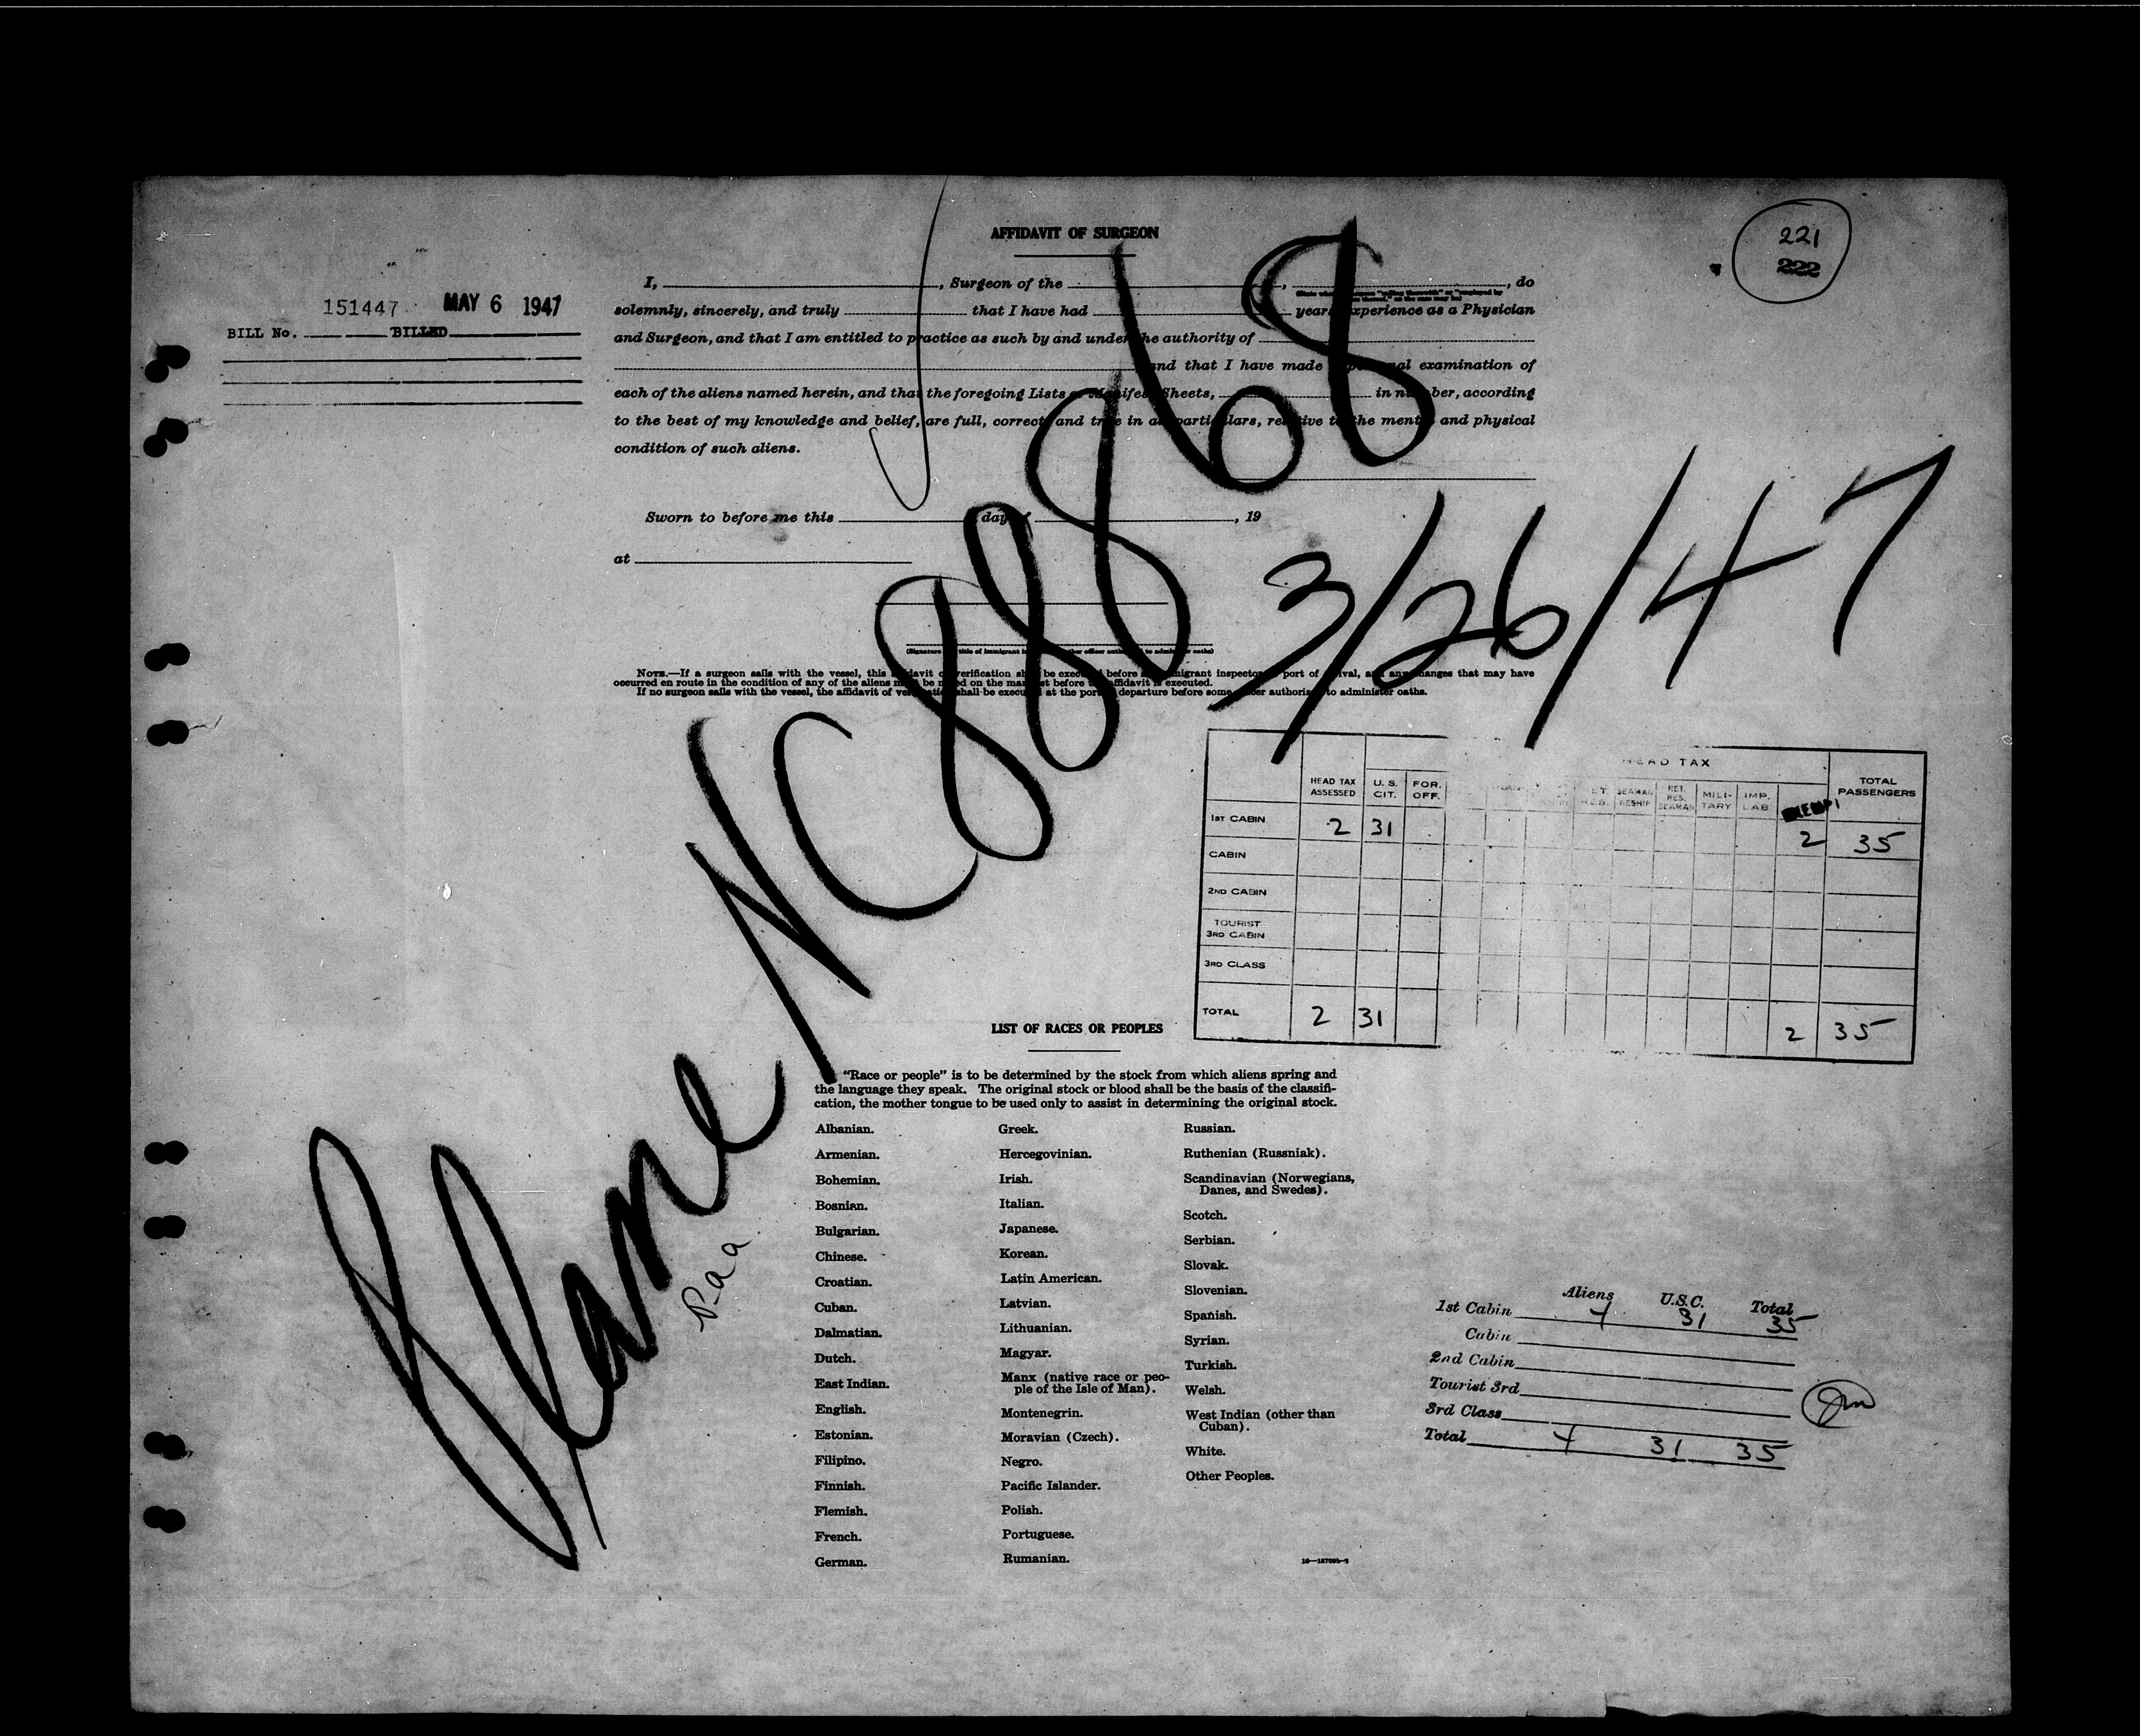 221
222
AFFIDAVIT OF SURGEON
151447 MAY 6 1947
BILL No. BILLED
I, , Surgeon of the , , do
solemnly, sincerely, and truly that I have had years experience as a Physician
and Surgeon, and that I am entitled to practice as such by and under the authority of
and that I have made personal examination of
each of the aliens named herein, and that the foregoing Lists or Manifest Sheets, in number, according
to the best of my knowledge and belief, are full, correct, and true in all particulars, relative to the mental and physical
condition of such aliens.
Sworn to before me this day of , 19
at
NOTE.—If a surgeon sails with the vessel, this affidavit or verification shall be executed before immigrant inspector port of arrival, and any changes that may have
occurred en route in the condition of any of the aliens must be noted on the manifest before the affidavit is executed.
If no surgeon sails with the vessel, the affidavit of verification shall be executed at the port of departure before some officer authorized to administer oaths.
Plane NC88868
3/26/47
Paa
HEAD TAX
HEAD TAX ASSESSED U. S. CIT. FOR. OFF. SEAMAN RESHIP RET. RES. SEAMAN MILI-TARY IMP. LAB EXEMPT TOTAL PASSENGERS
1ST CABIN 2 31 2 35
CABIN
2ND CABIN
TOURIST
3RD CABIN
3RD CLASS
TOTAL 2 31 2 35
LIST OF RACES OR PEOPLES
"Race or people" is to be determined by the stock from which aliens spring and
the language they speak. The original stock or blood shall be the basis of the classifi-
cation, the mother tongue to be used only to assist in determining the original stock.
Albanian.
Armenian.
Bohemian.
Bosnian.
Bulgarian.
Chinese.
Croatian.
Cuban.
Dalmatian.
Dutch.
East Indian.
English.
Estonian.
Filipino.
Finnish.
Flemish.
French.
German.
Greek.
Hercegovinian.
Irish.
Italian.
Japanese.
Korean.
Latin American.
Latvian.
Lithuanian.
Magyar.
Manx (native race or peo-
ple of the Isle of Man).
Montenegrin.
Moravian (Czech).
Negro.
Pacific Islander.
Polish.
Portuguese.
Rumanian.
Russian.
Ruthenian (Russniak).
Scandinavian (Norwegians,
Danes, and Swedes).
Scotch.
Serbian.
Slovak.
Slovenian.
Spanish.
Syrian.
Turkish.
Welsh.
West Indian (other than
Cuban).
White.
Other Peoples.
Aliens U.S.C. Total
1st Cabin 4 31 35
Cabin
2nd Cabin
Tourist 3rd
3rd Class
Total 4 31 35